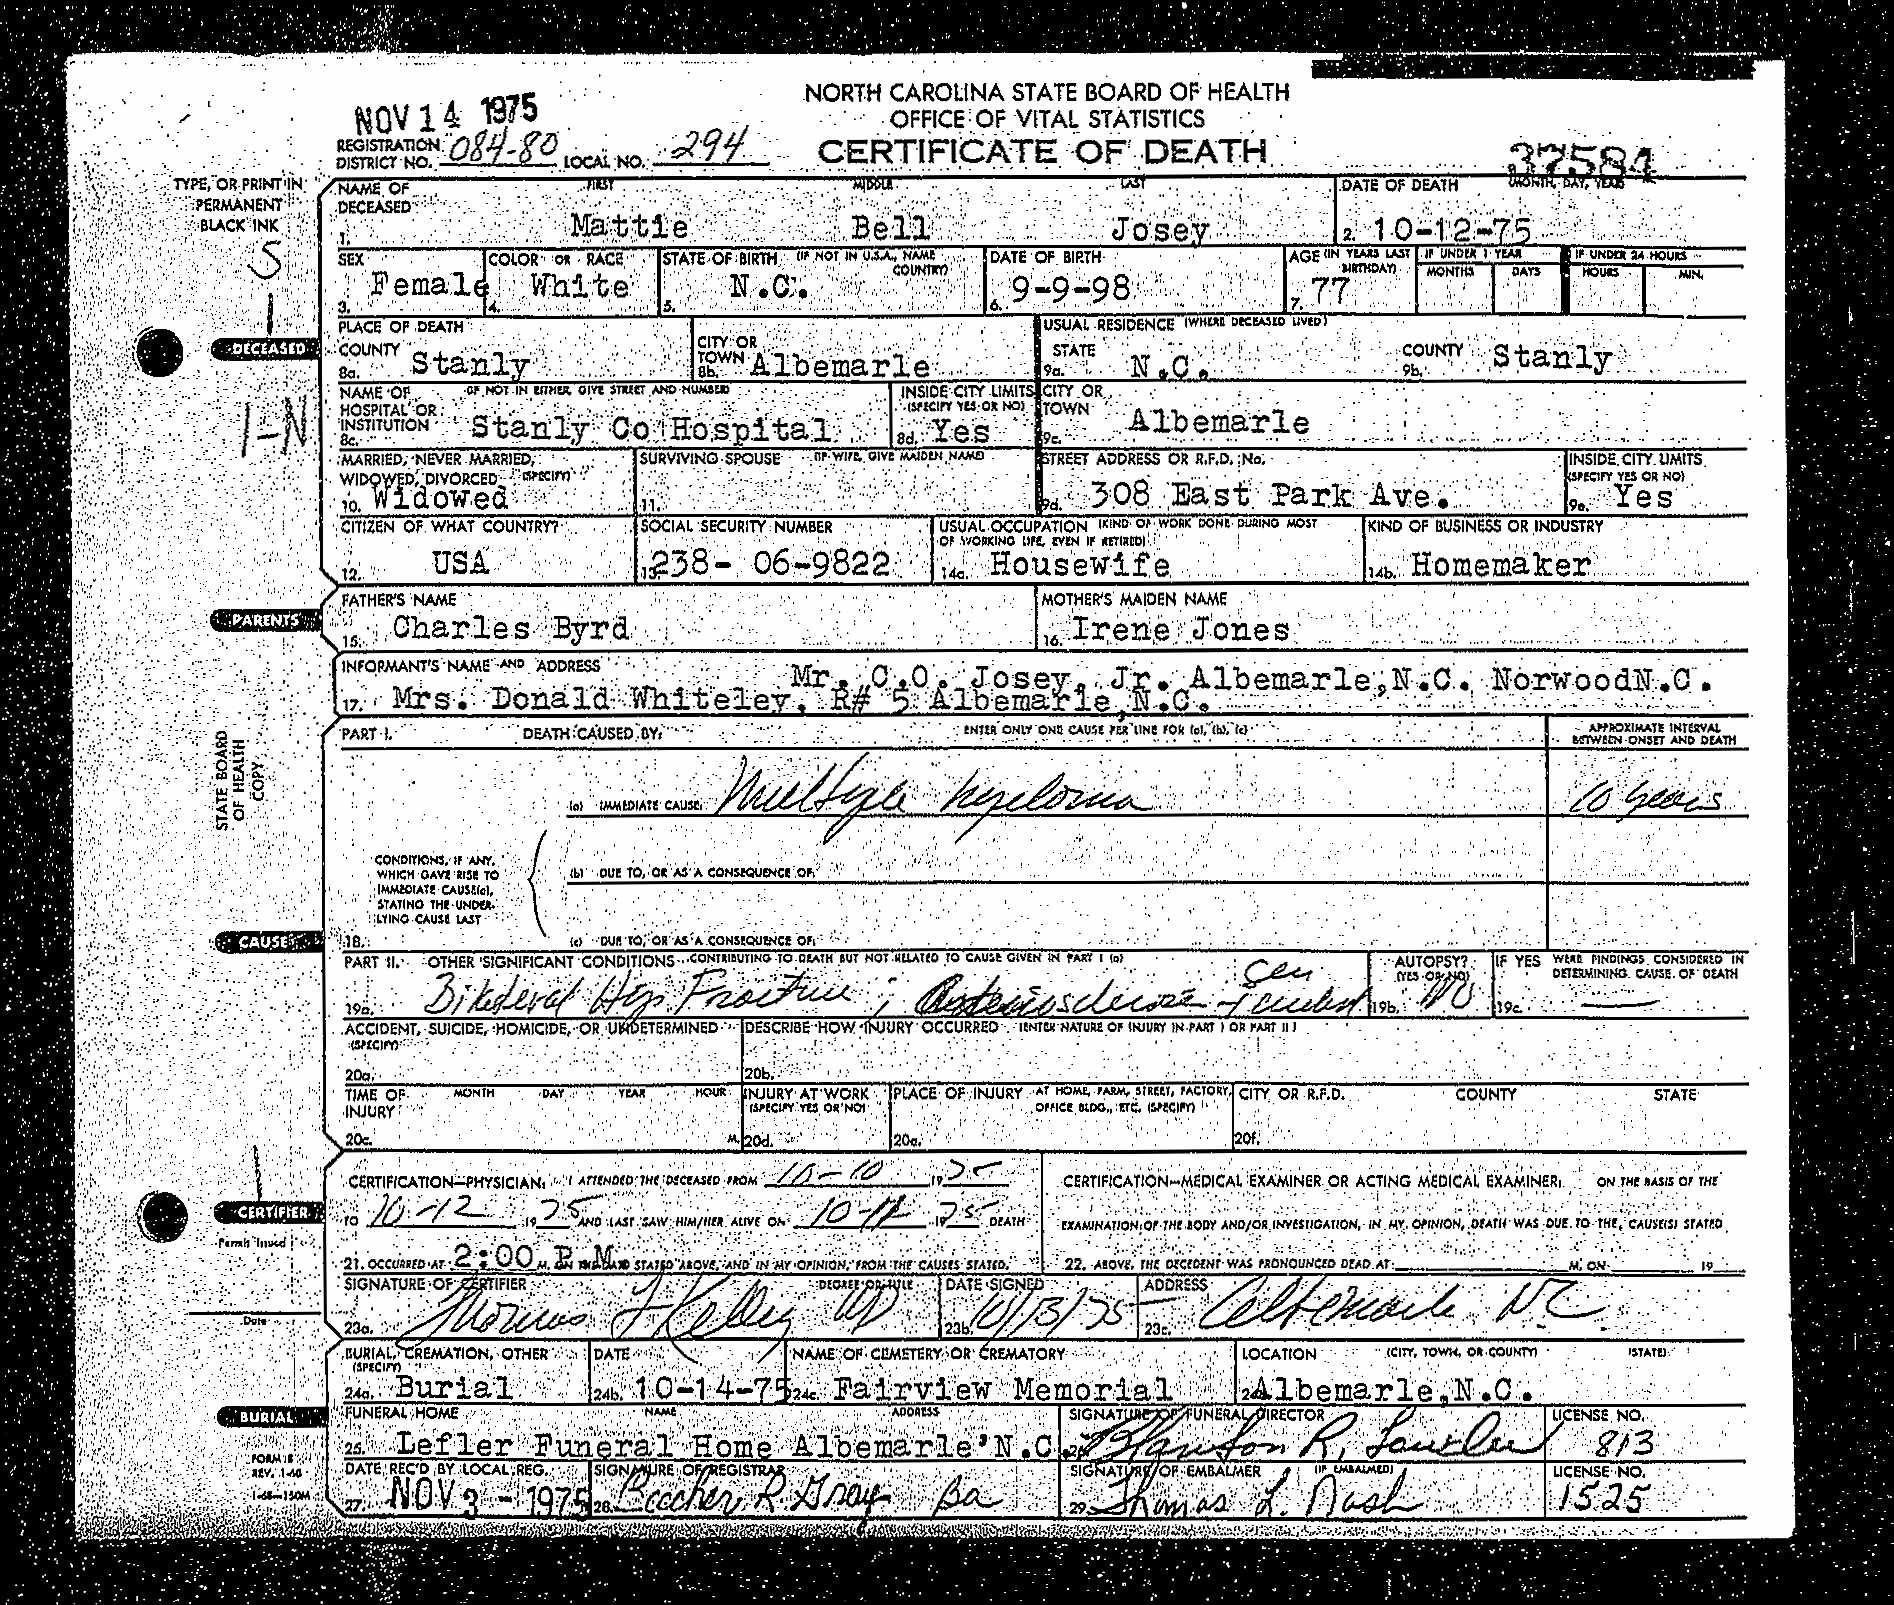 NORTH CAROLINA STATE BOARD OF HEALTH
OFFICE OF VITAL STATISTICS
CERTIFICATE OF DEATH
NOV 14 1975
REGISTRATION DISTRICT NO. 084-80 LOCAL NO. 294
37584
TYPE, OR PRINT IN
PERMANENT
BLACK INK
5
1
1-N
DECEASED
NAME OF DECEASED FIRST MIDDLE LAST
1. Mattie Bell Josey
DATE OF DEATH (MONTH, DAY, YEAR)
2. 10-12-75
SEX
3. Female
COLOR OR RACE
4. White
STATE OF BIRTH (IF NOT IN U.S.A., NAME COUNTRY)
5. N.C.
DATE OF BIRTH
6. 9-9-98
AGE (IN YEARS LAST BIRTHDAY)
7. 77
IF UNDER 1 YEAR
MONTHS DAYS
IF UNDER 24 HOURS
HOURS MIN.
PLACE OF DEATH
COUNTY
8a. Stanly
CITY OR TOWN
8b. Albemarle
USUAL RESIDENCE (WHERE DECEASED LIVED)
STATE
9a. N.C.
COUNTY
9b. Stanly
NAME OF HOSPITAL OR INSTITUTION (IF NOT IN EITHER, GIVE STREET AND NUMBER)
8c. Stanly Co Hospital
INSIDE CITY LIMITS (SPECIFY YES OR NO)
8d. Yes
CITY OR TOWN
9c. Albemarle
MARRIED, NEVER MARRIED, WIDOWED, DIVORCED (SPECIFY)
10. Widowed
SURVIVING SPOUSE (IF WIFE, GIVE MAIDEN NAME)
11.
STREET ADDRESS OR R.F.D. No.
9d. 308 East Park Ave.
INSIDE CITY LIMITS (SPECIFY YES OR NO)
9e. Yes
CITIZEN OF WHAT COUNTRY?
12. USA
SOCIAL SECURITY NUMBER
13. 238- 06-9822
USUAL OCCUPATION (KIND OF WORK DONE DURING MOST OF WORKING LIFE, EVEN IF RETIRED)
14a. Housewife
KIND OF BUSINESS OR INDUSTRY
14b. Homemaker
PARENTS
FATHER'S NAME
15. Charles Byrd
MOTHER'S MAIDEN NAME
16. Irene Jones
INFORMANT'S NAME AND ADDRESS
Mr. C.O. Josey, Jr. Albemarle,N.C. NorwoodN.C.
17. Mrs. Donald Whiteley, R# 5 Albemarle,N.C.
STATE BOARD
OF HEALTH
COPY
PART I. DEATH CAUSED BY: ENTER ONLY ONE CAUSE PER LINE FOR (a), (b), (c)
APPROXIMATE INTERVAL BETWEEN ONSET AND DEATH
(a) IMMEDIATE CAUSE: Multiple myeloma 10 years
CONDITIONS, IF ANY,
WHICH GAVE RISE TO
IMMEDIATE CAUSE(a),
STATING THE UNDER-
LYING CAUSE LAST
(b) DUE TO, OR AS A CONSEQUENCE OF:
CAUSE
18. (c) DUE TO, OR AS A CONSEQUENCE OF:
PART II. OTHER SIGNIFICANT CONDITIONS CONTRIBUTING TO DEATH BUT NOT RELATED TO CAUSE GIVEN IN PART I (a)
19a. Bilateral Hip Fracture ; Arteriosclerosis
AUTOPSY? (YES OR NO)
19b. NO
IF YES WERE FINDINGS CONSIDERED IN DETERMINING CAUSE OF DEATH
19c. —
ACCIDENT, SUICIDE, HOMICIDE, OR UNDETERMINED (SPECIFY)
20a.
DESCRIBE HOW INJURY OCCURRED (ENTER NATURE OF INJURY IN PART I OR PART II)
20b.
TIME OF INJURY MONTH DAY YEAR HOUR
20c. M.
INJURY AT WORK (SPECIFY YES OR NO)
20d.
PLACE OF INJURY AT HOME, FARM, STREET, FACTORY, OFFICE BLDG., ETC. (SPECIFY)
20e.
CITY OR R.F.D. COUNTY STATE
20f.
CERTIFIER
Permit Issued
Date
CERTIFICATION—PHYSICIAN: I ATTENDED THE DECEASED FROM 10-10 1975
TO 10-12 1975 AND LAST SAW HIM/HER ALIVE ON 10-11 1975 DEATH
21. OCCURRED AT 2:00 P.M. M. ON THE DATE STATED ABOVE, AND IN MY OPINION, FROM THE CAUSES STATED.
CERTIFICATION—MEDICAL EXAMINER OR ACTING MEDICAL EXAMINER: ON THE BASIS OF THE
EXAMINATION OF THE BODY AND/OR INVESTIGATION, IN MY OPINION, DEATH WAS DUE TO THE CAUSE(S) STATED
22. ABOVE. THE DECEDENT WAS PRONOUNCED DEAD AT: M. ON 19
SIGNATURE OF CERTIFIER DEGREE OR TITLE
23a. Thomas F Kelley MD
DATE SIGNED
23b. 10/13/75
ADDRESS
23c. Albemarle N.C.
BURIAL
BURIAL, CREMATION, OTHER (SPECIFY)
24a. Burial
DATE
24b. 10-14-75
NAME OF CEMETERY OR CREMATORY
24c. Fairview Memorial
LOCATION (CITY, TOWN, OR COUNTY) (STATE)
24d. Albemarle,N.C.
FUNERAL HOME NAME ADDRESS
25. Lefler Funeral Home Albemarle'N.C.
SIGNATURE OF FUNERAL DIRECTOR
26. Blanton R.
LICENSE NO.
813
DATE REC'D BY LOCAL REG.
27. NOV 3 - 1975
SIGNATURE OF REGISTRAR
28. Beecher R Gray Ba
SIGNATURE OF EMBALMER (IF EMBALMED)
29. Thomas L. Nash
LICENSE NO.
1525
FORM 8
REV. 1-68
1-68—150M